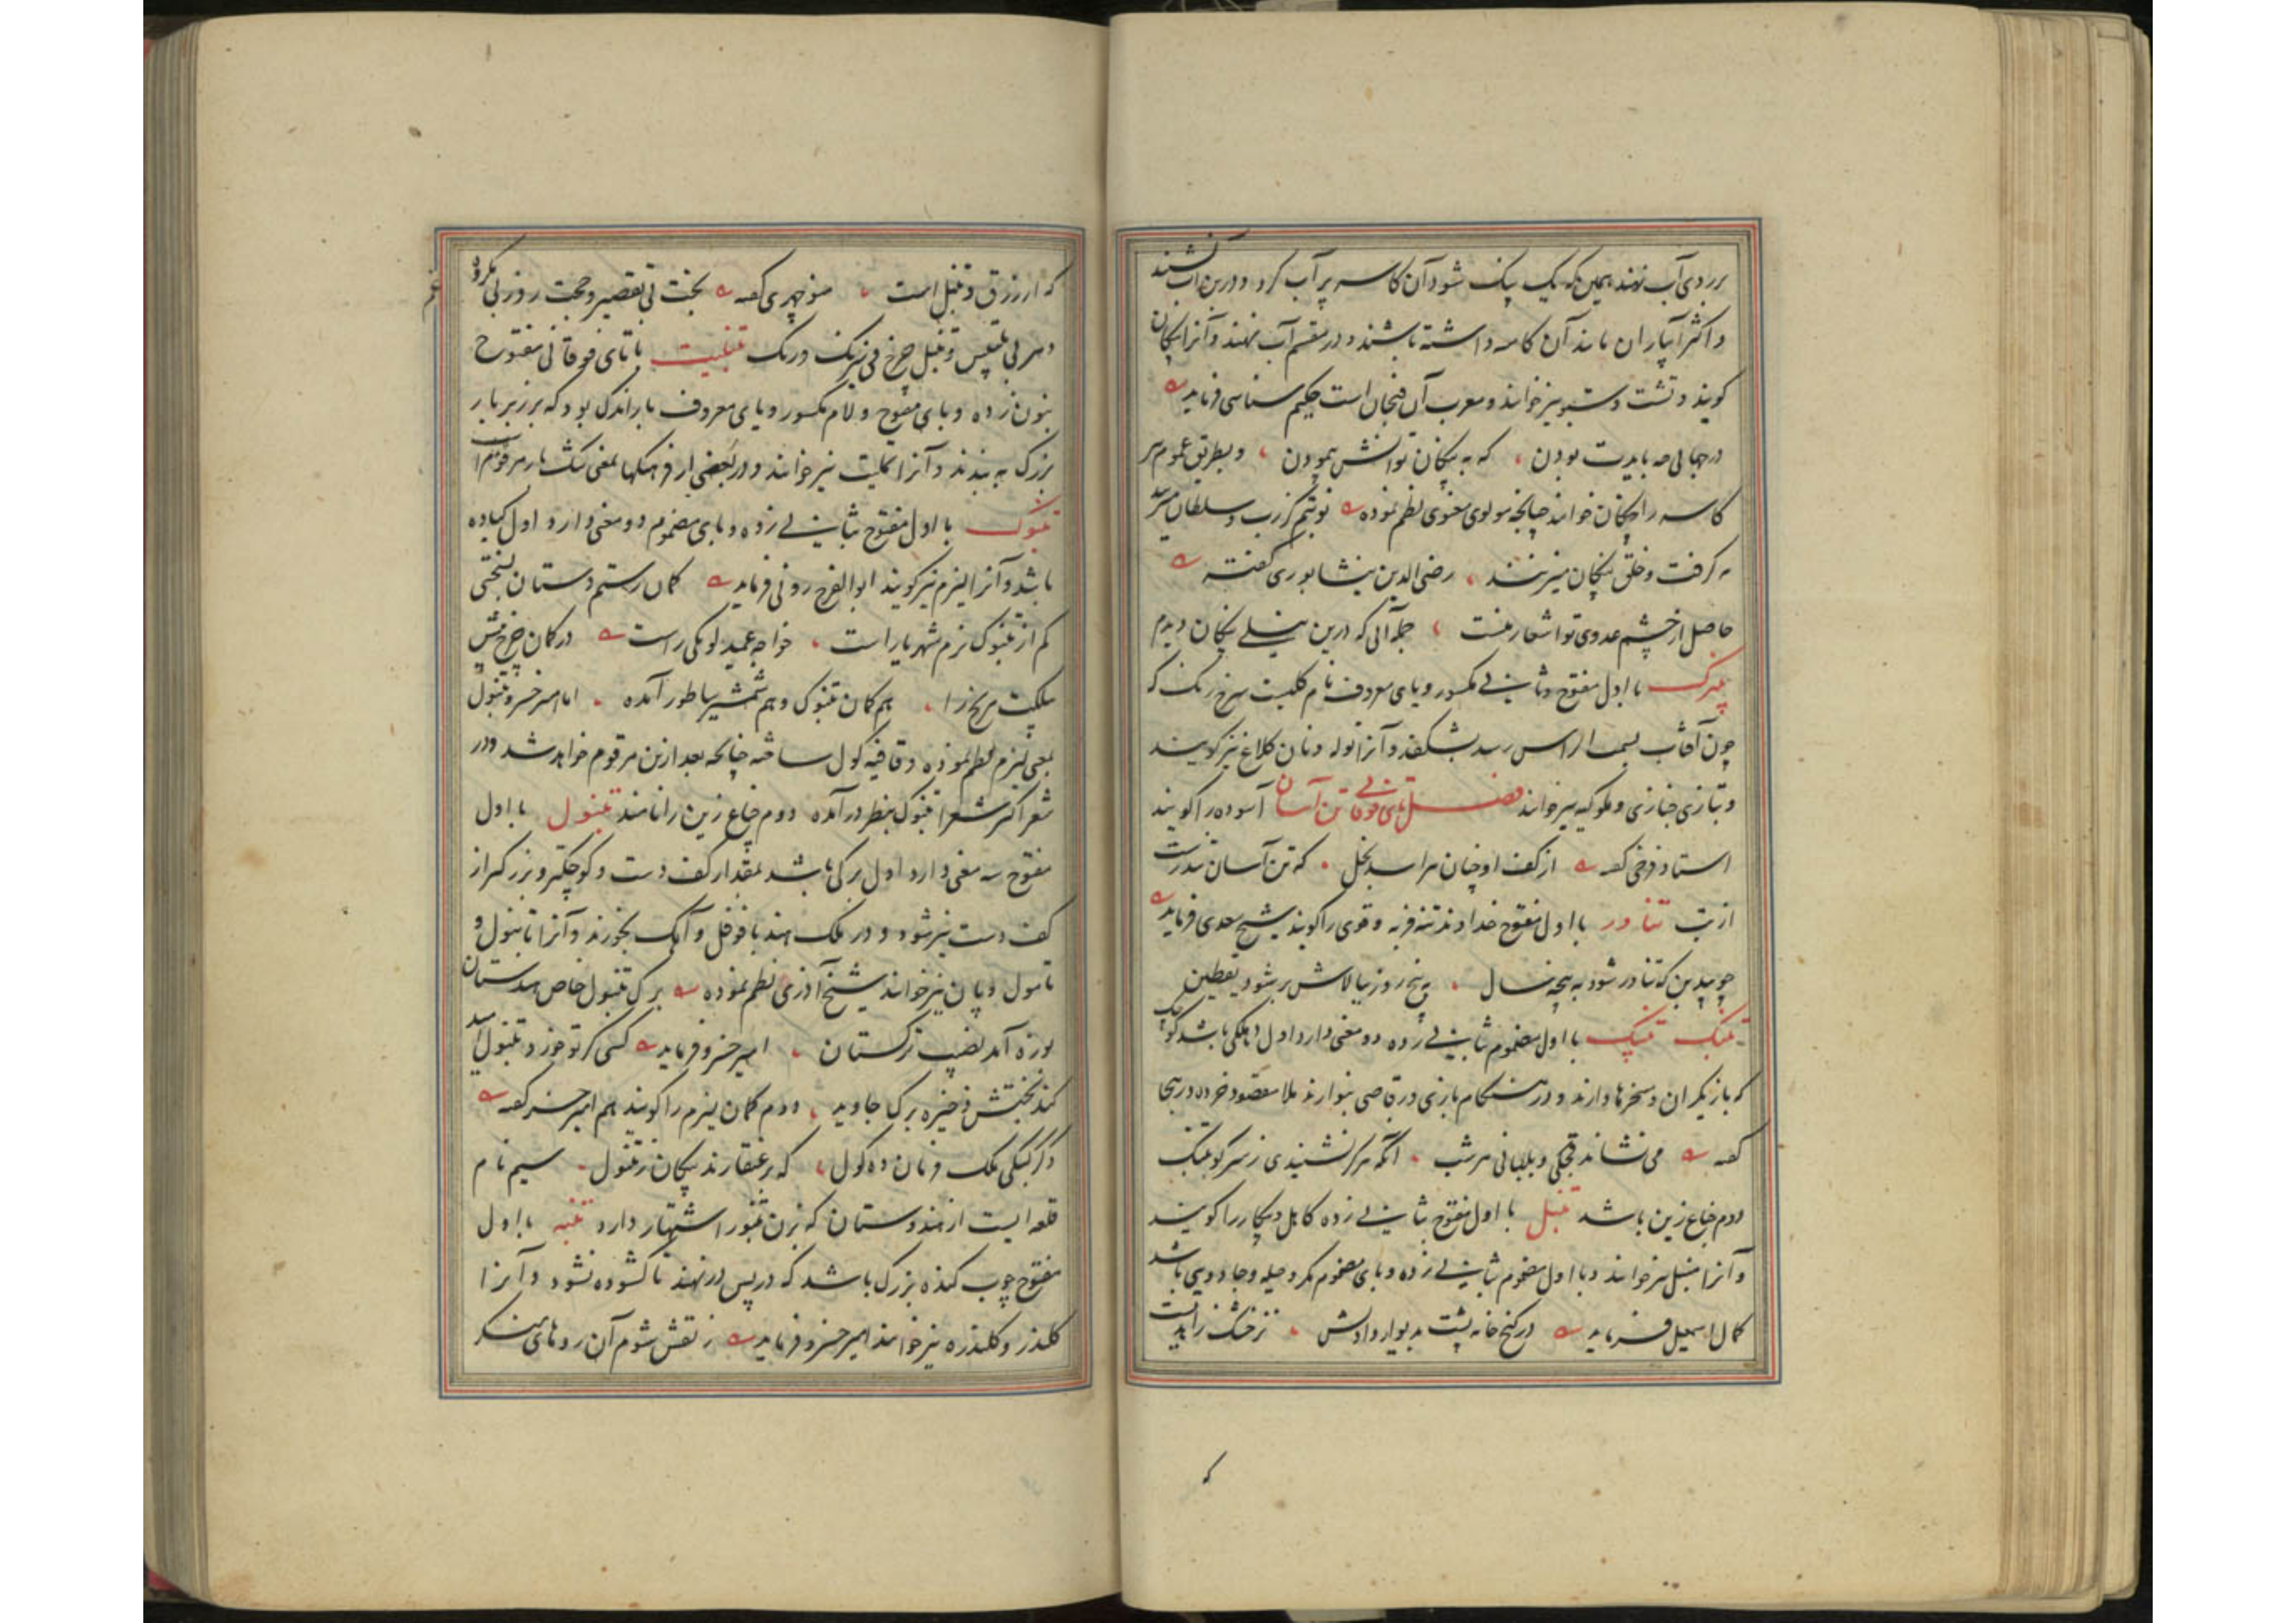 بر روی آب نهند همین که یک پنک شود آن کاسه پر آب کرد و درین آب نشیند
و اکثر آبیاران مانند آن کاسه داشته باشند و در مقسم آب نهند و آنرا پنکان
کویند و تشت و سبو نیز خوانند و معرب آن فنجان است حکیم سناسی فرماید
در جهانی چه بایدت بودن که به پنکان توانش پیمودن و بطریق عموم هر
کاسه را پنکان خوانند چنانچه مولوی معنوی نظم نموده نوبتم کر رب و سلطان میزند
مه کرفت و خلق پنکان میزنند رضی الدین نیشابوری کفته
حاصل از چشم عدوی تو اشعار منست جمله آلی که درین نیلی پنکان دیدم
پنیرک با اول مفتوح و ثانی مکسور و یای معروف نام کلیست سرخ رنک که
چون آفتاب بسمت الراس رسد بشکفد و آنرا توله و نان کلاغ نیز کویند
و بتازی خبازی و ملوکیه نیز خوانند فصل تای فوقانی تن آسان آسوده را کویند
استاد فرخی کفته از کف او چنان هراسد بخل که تن آسان تندرست
از تب تناور با اول مفتوح خداوند تنه فربه و قوی را کویند شیخ سعدی فرماید
چو بیدبن که تناور شود به پنجه سال به پنج روز ببالاش بر شود یقطین
تنبک تنپک با اول مضموم بثانی زده دو معنی دارد اول دهلی باشد کوچک
که بازیکران و مسخرها دارند و در هنکام بازی و رقاصی بنوازند ملا مقصود خرده در هجا
کفته می نشاند قجکی و بلبانی هر شب آنکه هرکز نشنیدی ز سر کو تنبک
دوم جناغ زین باشد تنبل با اول مفتوح بثانی زده کاهل و بیکار را کویند
و آنرا منبل نیز خوانند و با اول مضموم بثانی زده و بای مضموم مکر و حیله و جادویی باشد
کمال اسمعیل فرماید در کنج خانه پشت به دیوار دادش
که
که از زرق و تنبل است منوچهری کفته بخت بی تقصیر و حجت روز بی مکروه
دهر بی تلبیس و تنبل چرخ بی نیرنک و رنک تنبلیت با تای فوقانی مفتوح
بنون زده و بای مفتوح و لام مکسور و یای معروف باراندک بود که بر زبر بار
بزرک به بندند و آنرا تملیت نیز خوانند و در بعضی از فرهنکها بمعنی تنک بار مرقوم است
تنبوک با اول مفتوح بثانی زده و بای مضموم دو معنی دارد اول کباده
باشد و آنرا لیزم نیز کویند ابوالفرج رونی فرماید کمان رستم دستان بسختی
کم از تنبوک نرم شهریار است خواجه عمید لومکی راست در کمان چرخ
مریخ را هم کمان تنبوک و هم شمشیر ساطور آمده اما امیر خسرو تنبول
بمعنی لیزم نظم نموده و قافیه کول ساخته چنانچه بعد ازین مرقوم خواهد شد و در
شعر اکثر شعرا تنبوک بنظر درآمده دوم جناغ زین را نامند تنبول با اول
مفتوح سه معنی دارد اول برکی باشد بمقدار کف دست و کوچکتر و بزرکتر از
کف دست نیز شود و در ملک هند با فوفل و آهک بخورند و آنرا تانبول و
تامول و پان نیز خوانند شیخ آذری نظم نموده برک تنبول خاص هندستان
نوزه آمد نصیب ترکستان امیر خسرو فرماید کسی کز تو خورد تنبول امید
کند بختش ذخیره برک جاوید دوم کمان لیزم را کویند هم امیر خسرو کفته
ملک فرمان ده کول که بر عنقا زند پیکان ز تنبول سیم نام
قلعه ایست از هندوستان که برن تنبور اشتهار دارد تنبه با اول
مفتوح چوب کنده بزرک باشد که در پس در نهند تا کشوده نشود و آنرا
کلندر و کلندره نیز خوانند امیر خسرو فرماید ز نقش شوم آن روهای منکر